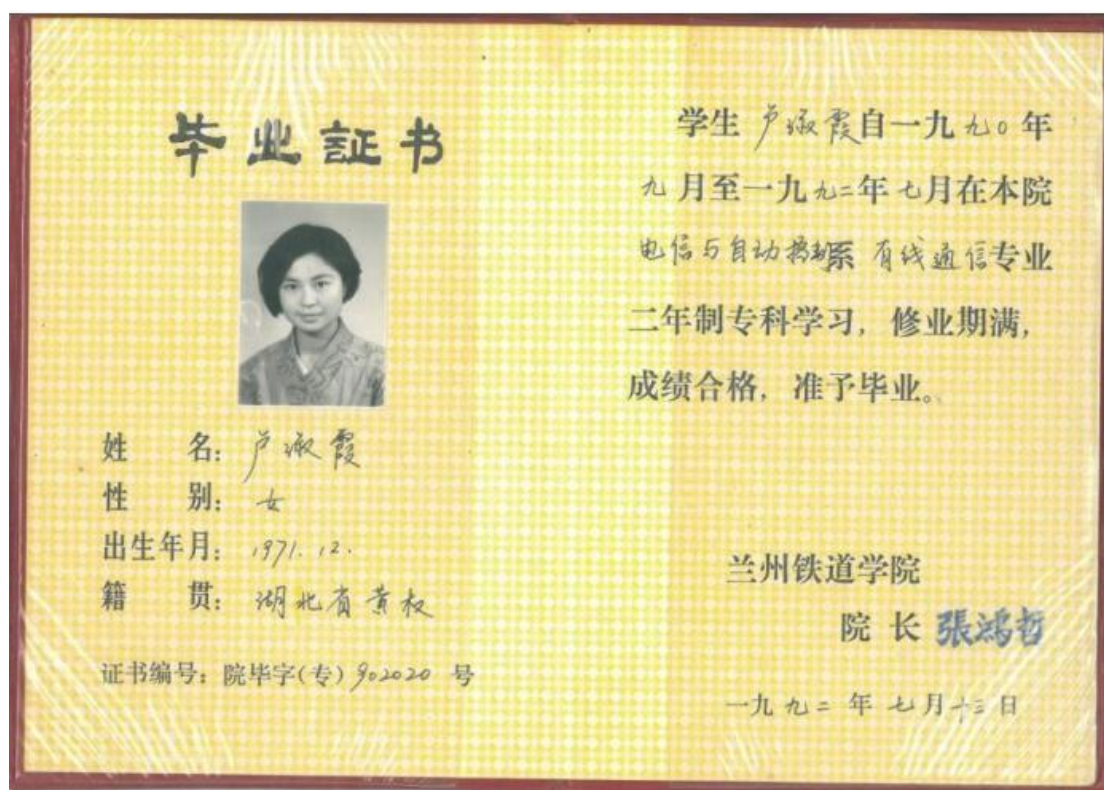 毕业証书
姓 名：卢淑霞
性 别：女
出生年月：1971.12.
籍 贯：湖北省黄
证书编号：院毕字(专)902020 号
学生 卢淑霞自一九九〇年
九月至一九九二年七月在本院
电信与自动控制系 有线通信专业
二年制专科学习，修业期满，
成绩合格，准予毕业。
兰州铁道学院
院 长 張鸿哲
一九九二 年 七月十三日